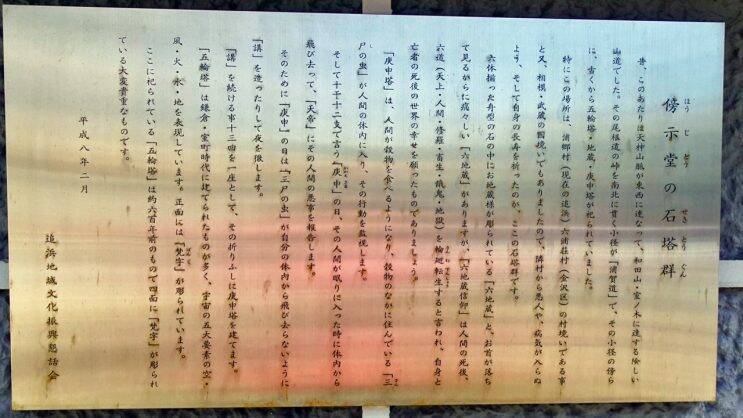 傍示堂の石塔群
ほうじどう せきとうぐん
昔、このあたりは天神山脈が東西に連なって、和田山・室ノ木に達する険しい
山道でした。その尾根道の峠を南北に貫く小径が「浦賀道」で、その小径の傍ら
に、古くから五輪塔・地蔵・庚申塔が祀られていました。
特にこの場所は、浦郷村（現在の追浜）六浦荘村（金沢区）の村境いである事
と又、相模・武蔵の国境いでもありましたので、隣村から悪人や、病気が入らぬ
よう、そして自身の長寿を祈ったのが、ここの石塔群です。
六体揃った舟型の石の中にお地蔵様が彫られている「六地蔵」と、お首が落ち
て見るからに痛々しい「六地蔵」がありますが、「六地蔵信仰」は人間の死後、
六道（天上・人間・修羅・畜生・餓鬼・地獄）を輪廻転生すると言われ、自身と
亡者の死後の世界の幸せを願ったものでありましょう。
「庚申塔」は、人間が穀物を食べるようになり、穀物のなかに住んでいる「三
尸の虫」が人間の体内に入り、その行動を監視します。
そして十干十二支で言う「庚申」の日、その人間が眠りに入った時に体内から
飛び去って、「天帝」にその人間の悪事を報告します。
そのために「庚申」の日は「三尸の虫」が自分の体内から飛び去らないように
「講」を造ったりして夜を徹します。
「講」を続ける事十三回を一座として、その折りふしに庚申塔を建てます。
「五輪塔」は鎌倉・室町時代に建てられたものが多く、宇宙の五大要素の空・
風・火・水・地を表現しています。正面には「梵字」が彫られています。
ここに祀られている「五輪塔」は約六百年前のもので四面に「梵字」が彫られ
ている大変貴重なものです。
平成八年二月
追浜地域文化振興懇話会